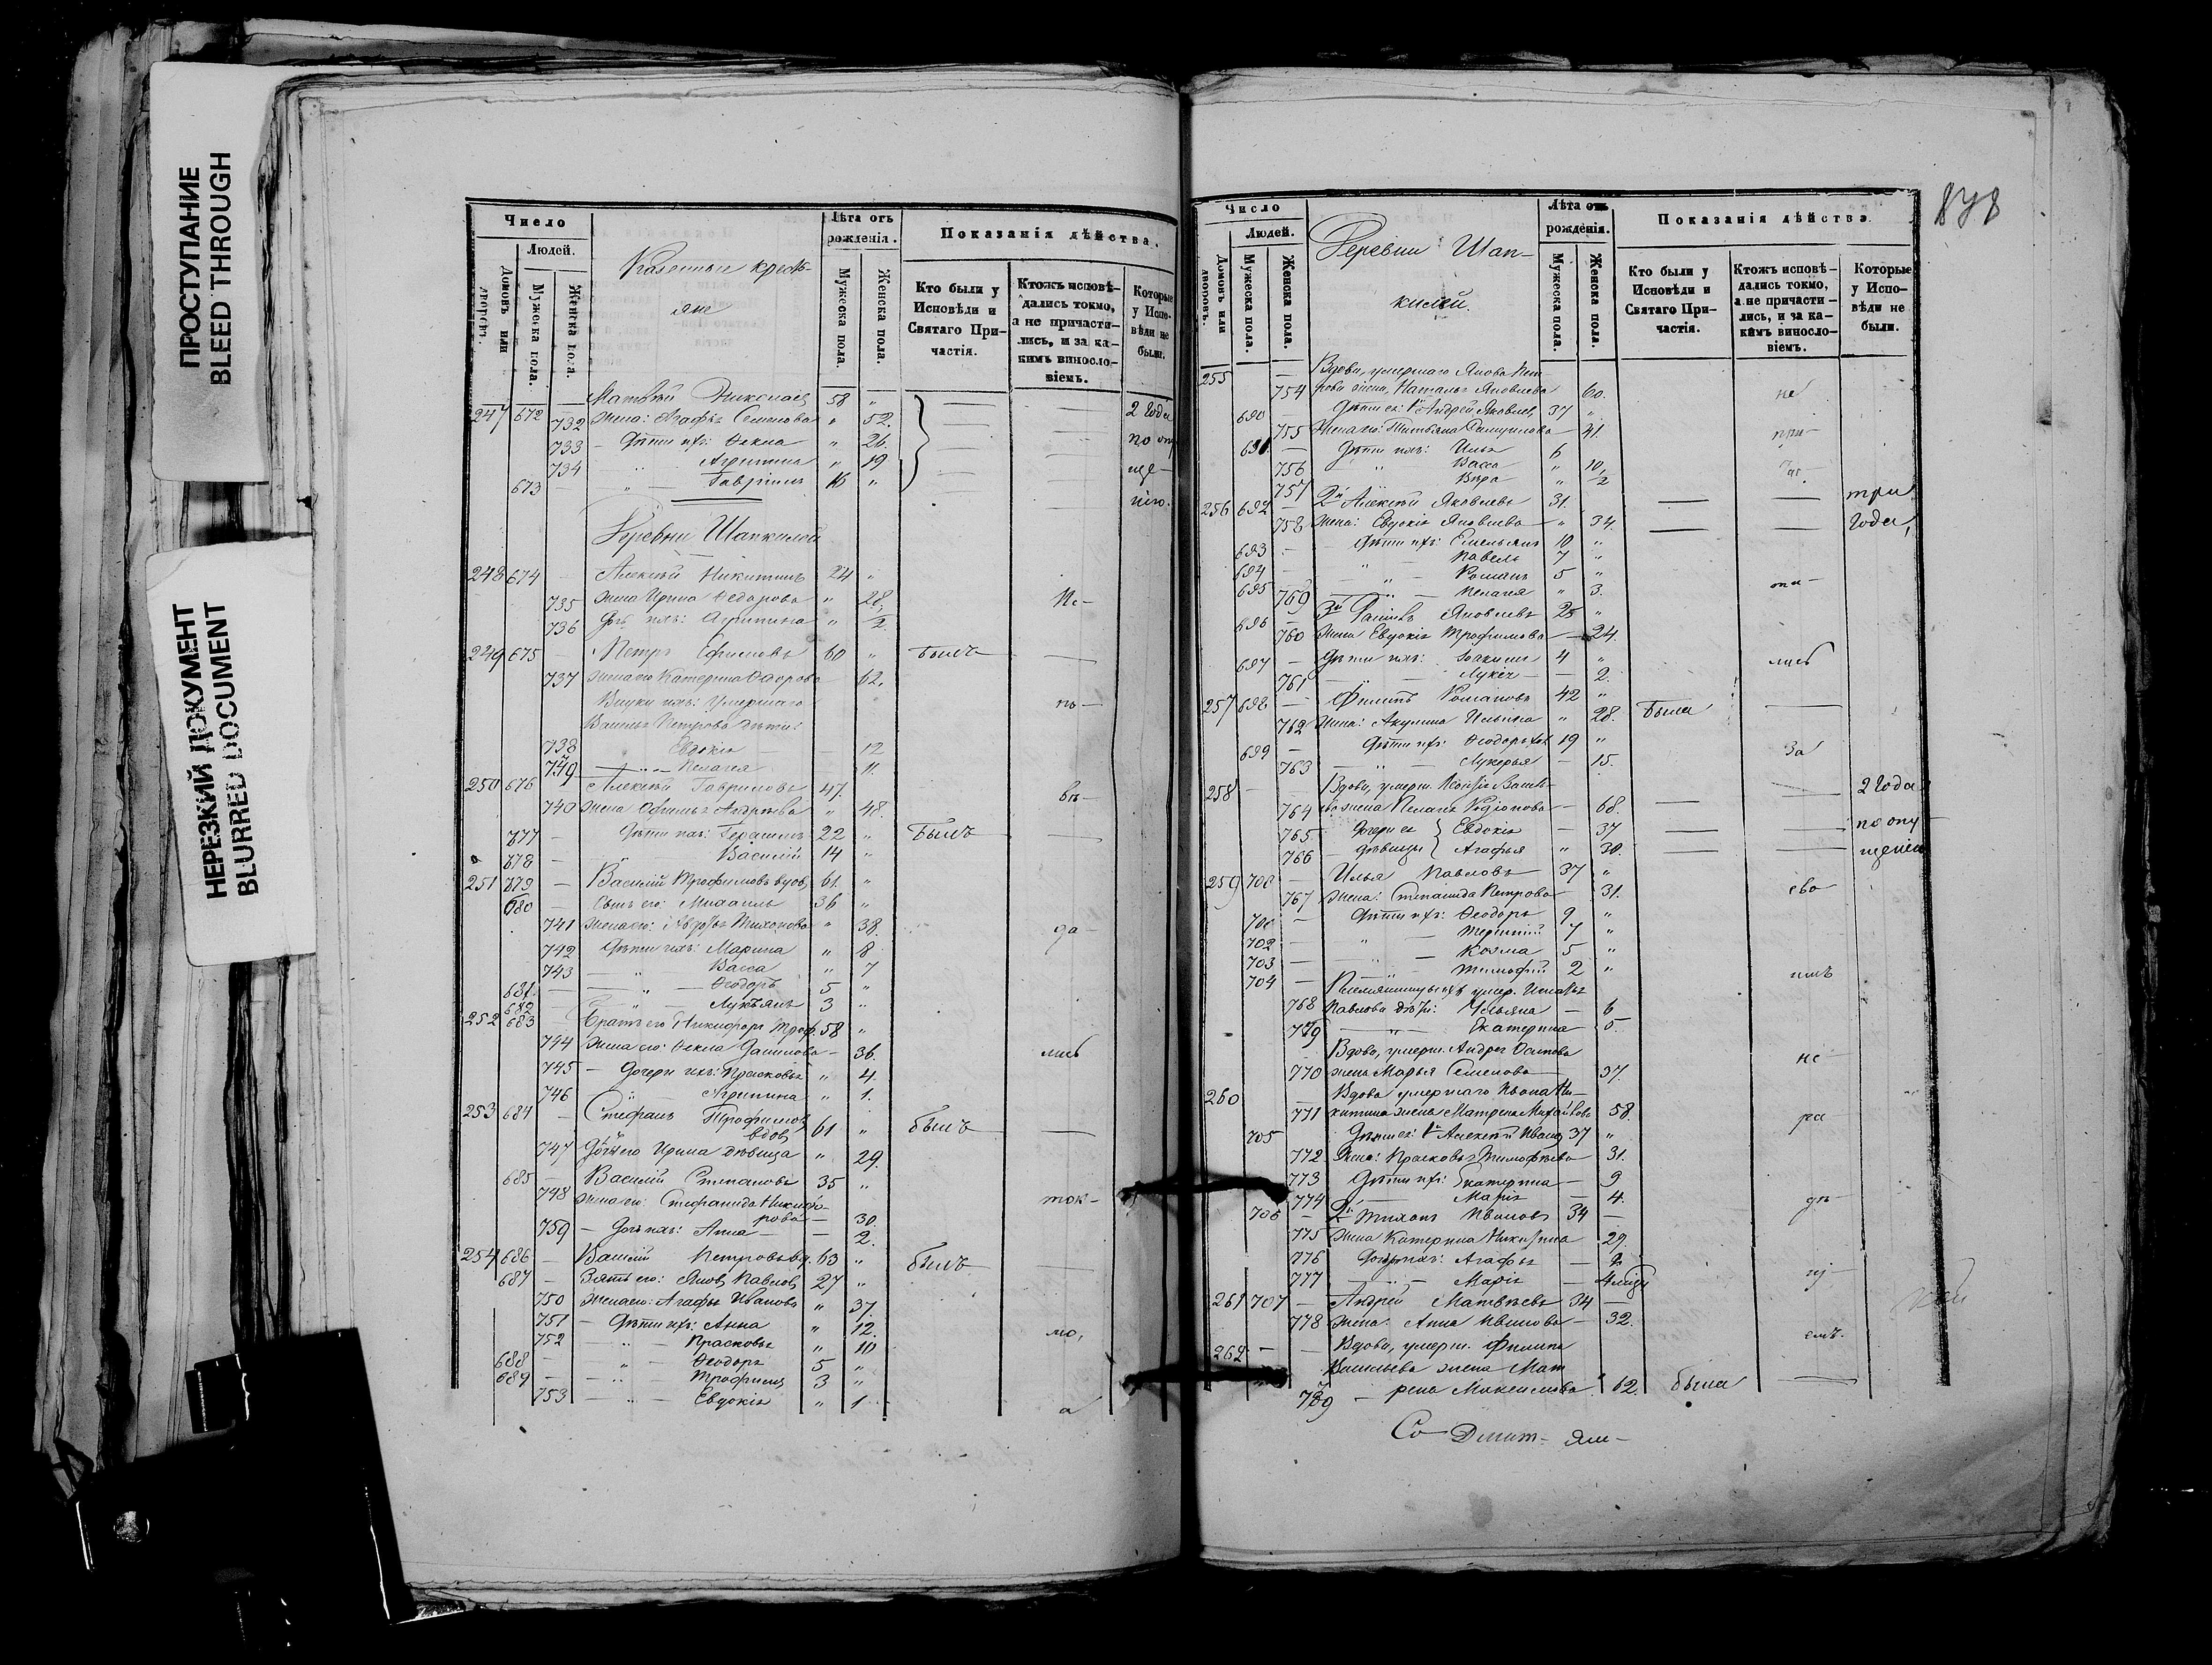 ПРОСТУПАНИЕ
BLEED THROUGH
НЕРЕЗКИЙ ДОКУМЕНТ
BLURRED DOCUMENT
Число
Людей.
Домовъ или дворовъ.
Мужеска пола.
Женска пола.
Казенные кресть-
яне
Лѣта отъ рожденія.
Мужеска пола.
Женска пола.
Показанія дѣйства.
Кто были у Исповѣди и Святаго При-частія.
Ктожъ исповѣ-дались токмо, а не причасти-лись, и за ка-кимъ винослo-віемъ.
Которые у Испо-вѣди не были.
247 672 Матвѣй 58 "
732 Жена: Агафья Семенова " 52. 2 года
733 Дѣти ихъ: Ѳекла " 26 по опу
734 " Агрипина " 19 ще-
673 " Гавріилъ 16 " нію.
Деревни Шапкилей
248 674 Алексѣй Никитинъ 24 "
735 Жена Ирина Ѳедорова " 28, Не-
736 Дочь ихъ: Агрипина " 2.
249 675 Петръ Ефимовъ 60 " Былъ
737 Жена его Катерина Ѳедорова 62.
Внуки ихъ: Умершаго по-
Василья Петрова дѣти:
738 Евдокія 12
749 " Пелагея 11.
250 676 Алексѣй Гавриловъ 47. вѣ-
740 Жена Афимья Андреева " 48.
777 Дѣти ихъ: Герасимъ 22 " Былъ
778 " Василій 14 "
251 779 Василій Трофимовъ вдов. 61. "
680 Сынъ его: Михаилъ 36 "
741 Жена его: Авдотья Тихонова " 38. да-
742 Дѣти ихъ: Марина " 8
743 " Васса " 7
681. " Ѳеодоръ 5 "
682 " Лукьянъ 3 "
252 683 Братъ его Никифоръ Троф. 58 "
744 Жена его: Ѳекла Данилова 36. лись
745 Дочери ихъ: Прасковья " 4.
746 " Агрипина " 1.
253 684 Стефанъ Трофимов
вдов 61 " былъ
747 Дочь его Ирина дѣвица " 29.
685 Василій Степановъ 35 "
748 Жена его: Стефанида Никифо- ток-
рова 30.
759 Дочь ихъ: Анна 2.
254 686 Василій Петровъ вд. 63 " былъ
687 Зять его: Яков Павлов 27 "
750 Жена его: Агафья Иванова " 37.
751 Дѣти ихъ: Анна " 12. мо,
752 " Прасковья " 10
688 " Ѳеодоръ 5 "
689 " Трофимъ 3 "
753 " Евдокія " 1 а
878
Число
Людей.
Домовъ или дворовъ.
Мужеска пола.
Женска пола.
Деревни Шап-
килей.
Лѣта отъ рожденія.
Мужеска пола.
Женска пола.
Показанія дѣйства.
Кто были у Исповѣди и Святаго При-частія.
Ктожъ исповѣ-дались токмо, а не причасти-лись, и за ка-кимъ винослo-віемъ.
Которые у Испо-вѣди не были.
255 Вдова, умершаго Якова Пет
754 рова жена, Наталья Яковлева 60. не
690 Дѣти ея: 1й Андрей Яковлев 37 "
755 Жена его: Татьяна 41. при-
691. Дѣти ихъ: Илья 6
756 " Васса " 10, час-
757 Вѣра " 2
256 692 2й Алексѣй Яковлевъ 31. три
758 Жена: Евдокія Яковлева " 34. года,
693 Дѣти ихъ: Емельянъ 10 "
694 Павелъ 7 "
695 " Романъ 5 " ти-
769 " Пелагея " 3.
696 3й Яковлевъ 25 "
760 Жена Евдокія Трофимова 24.
697 Дѣти ихъ: Іоакимъ 4 " лись
761 Лукія 2.
257 698 Филипъ Романовъ 42 "
762 Жена: Акулина Ильина " 28. Была
699 Дѣти ихъ: Ѳеодоръ 19 " за
763 " Лукерья 15.
258 Вдова, умерш. Василь- 2 года
764 ва жена Пелагея Родіонова 68.
765 Дочери ея Евдокія 37 по опу
766 дѣвицы Агафья " 30. щенію
259 700 Илья Павловъ 37 "
767 Жена: Степанида Петрова 31. сво
700 Дѣти ихъ: Ѳеодоръ 9 "
702 " 7 "
703 Козма 5 "
704 " Тимофей 2 " имъ
Племянницы ихъ умер. Игнатья
768 Павлова дѣти: Ульяна 6
779 " Екатерина 5.
Вдова, умерш. Андрея Осипова не-
770 жена Марья Семенова 37.
260 Вдова умершаго Ивана Ни-
771 китина жена Матрена Михайлова 58. ра
705 Дѣти ея: 1й Алексѣй Иванов 37 "
772 Жена: Прасковья Тимофѣева 31.
773 Дѣти ихъ: Екатерина 9
774 Марія 4. дѣ-
706 2й Тихонъ Ивановъ 34
775 Жена Катерина Никитина 29
776 Дочери ихъ: Агафья
777 " Марія
261 707 Андрей Матвѣевъ 34
778 Жена: Анна Иванова 32.
262 Вдова, умерш. Филипа емъ.
Васильева жена Мат
779 рена Максимова. 62. была